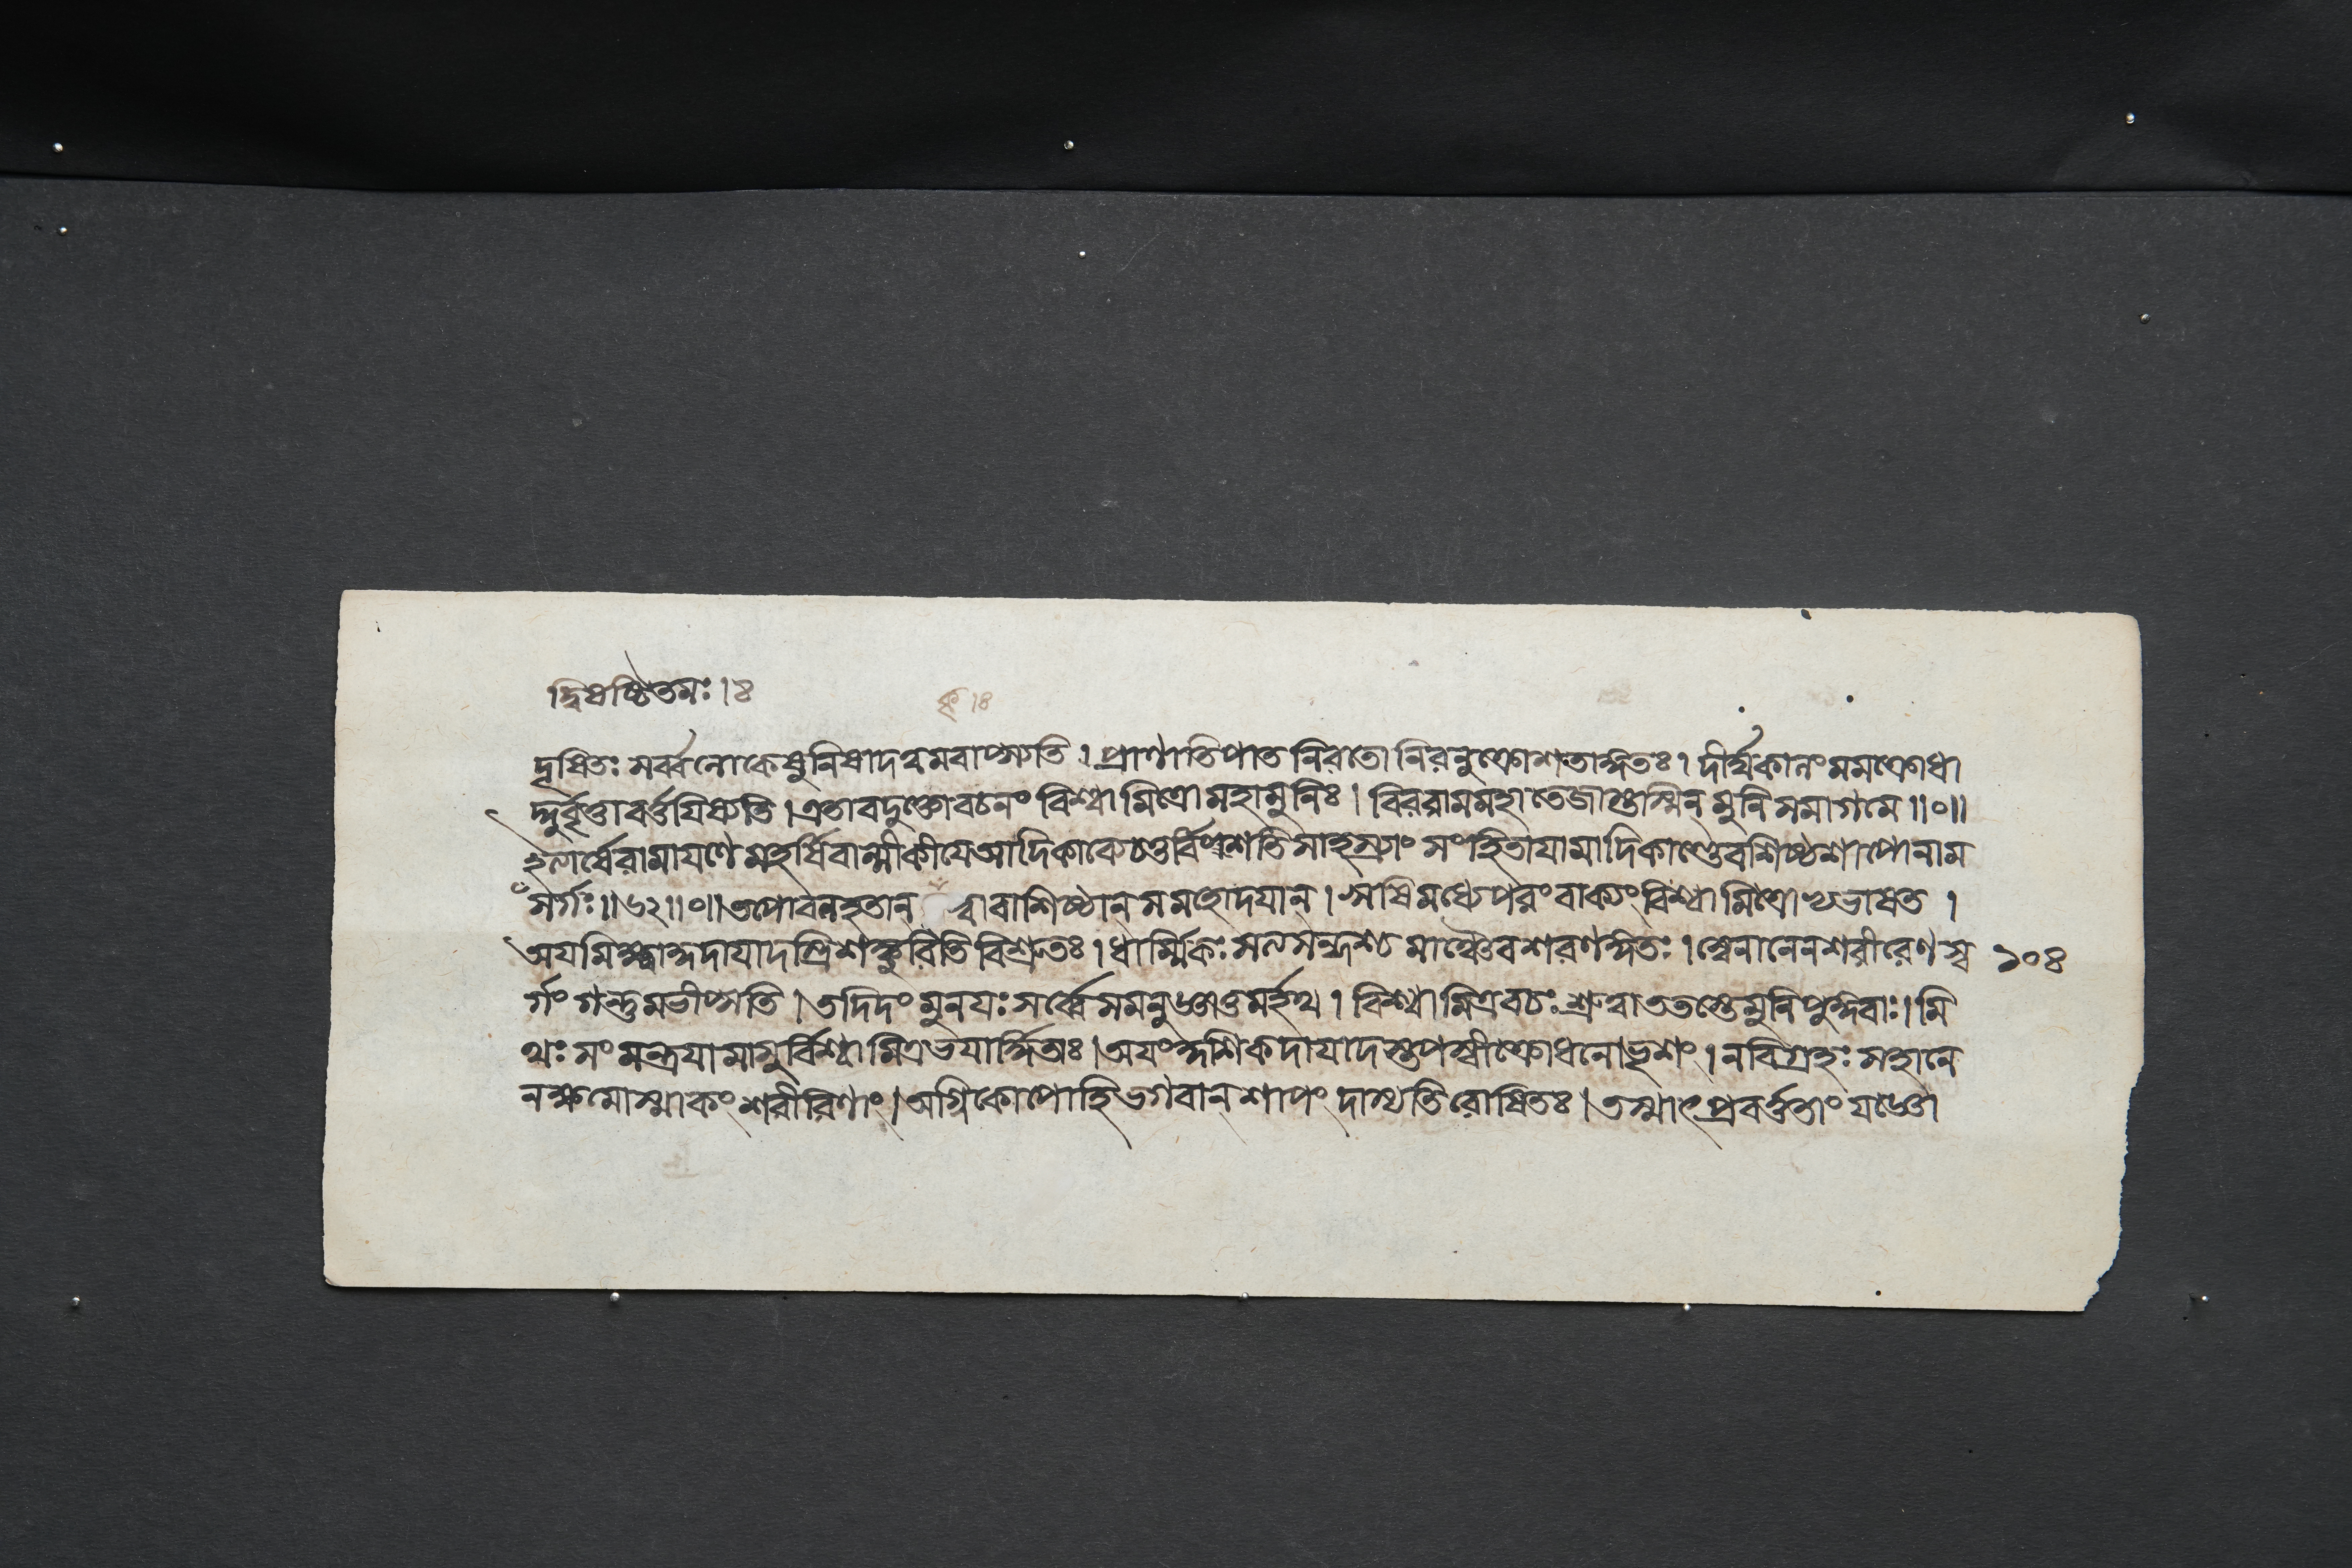 দ্বিষষ্টিতমঃ।৪
ক্ল।৪
দূষিতঃ সর্ব্বলোকেষু নিষাদত্বমবাপ্স্যতি। প্রাণাতিপাত নিরতো নিরনুক্রোশতাঙ্গতঃ। দীর্ঘকালং মমক্রোধা
দ্দুর্বৃত্তাবর্ত্তয়িষ্যতি। এতাবদুক্ত্বোবচনং বিশ্বামিত্রো মহামুনিঃ। বিররাম মহাতেজাস্তস্মিন্ মুনি সমাগমে॥০॥
ইত্যার্ষেরামায়ণে মহর্ষিবাল্মীকীয়ে আদিকাব্যে চতুর্বিংশতি সাহস্র্যাং সংহিতায়ামাদিকাণ্ডে বশিষ্ঠশাপোনাম
সর্গঃ॥৬২॥০॥ তপোবলহতান্ ত্বা বাশিষ্ঠান্ সমহোদয়ান্। ঋষিমধ্যেপরং বাক্যং বিশ্বামিত্রোভ্যভাষত।
অয়মিক্ষ্বাকুদায়াদস্ত্রিশঙ্কুরিতি বিশ্রুতঃ। ধার্ম্মিকঃ সত্যসন্ধশ্চ মাঞ্চৈব শরণঙ্গতঃ। স্বেনানেন শরীরেণ স্ব
১০৪
র্গং গন্তুমভীপ্সতি। তদিদং মুনয়ঃ সর্ব্বে সমনুজ্ঞাতুমর্হথ। বিশ্বামিত্রবচঃ শ্রুত্বা ততস্তে মুনিপুঙ্গবাঃ। মি
থঃ সংমন্ত্রয়ামাসুর্বিশ্বামিত্রভয়ার্দ্দিতাঃ। অয়ং কুশিকদায়াদস্তপস্বী ক্রোধনোভৃশং। ন বিগ্রহঃ সহানে
নক্ষমোস্মাকং শরীরিণাং। অগ্নিকোপোহি ভগবান্ শাপং দাস্যতি রোষিতঃ। তস্মাৎ প্রবর্ত্ততাং যজ্ঞো